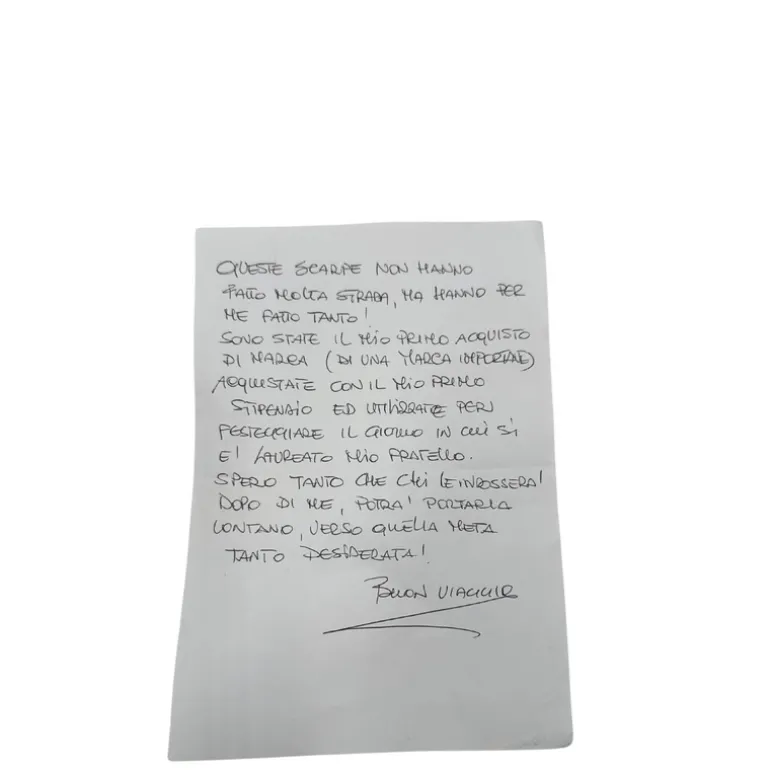 QUESTE SCARPE NON HANNO
FATTO MOLTA STRADA, MA HANNO PER
ME FATTO TANTO!
SONO STATE IL MIO PRIMO ACQUISTO
DI MARCA (DI UNA MARCA IMPORTANTE)
ACQUISTATE CON IL MIO PRIMO
STIPENDIO ED UTILIZZATE PER
FESTEGGIARE IL GIORNO IN CUI SI
E' LAUREATO MIO FRATELLO.
SPERO TANTO CHE CHI LE INDOSSERA'
DOPO DI ME, POTRA' PORTARLA
LONTANO, VERSO QUELLA META
TANTO DESIDERATA!
BUON VIAGGIO